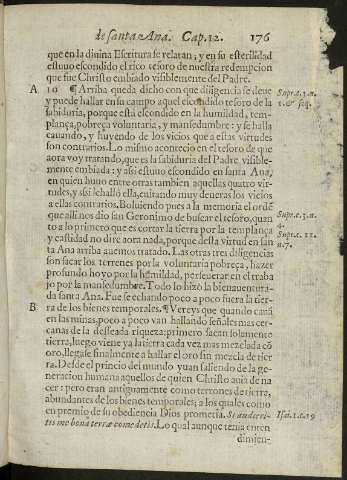 de santa Ana. Cap. 12. 176
que en la diuina Escritura se relatan; y en su esterilidad
estuuo escondido el rico tesoro de nuestra redempcion
que fue Christo embiado visiblemente del Padre.
A 10 ¶ Arriba queda dicho con que diligencia se deue Supr. c. 3. n.
y puede hallar en su campo aquel escondido tesoro de la 1. & seq.
sabiduria, porque está escondido en la humildad, tem-
plança, pobreza voluntaria, y mansedumbre: y se halla
cauando, y huyendo de los vicios que a ellas virtudes
son contrarios. Lo mismo acontecio en el tesoro de que
aora voy tratando, que es la sabiduria del Padre visible-
mente embiada: y assi estuuo escondido en santa Ana,
en quien huuo entre otras tambien aquellas quatro vir-
tudes, y assi le halló ella, euitando muy de veras los vicios
a ellas contrarios. Boluiendo pues a la memoria el ordẽ
que alli nos dio san Geronimo de buscar el tesoro, quan Supr. c. 3. n.
to a lo primero que es cortar la tierra por la templança 4.
y castidad no dire aora nada, porque desta virtud en san Supr. c. 11.
ta Ana arriba auemos tratado. Las otras tres diligencias n. 7.
son sacar los terrenos por la voluntaria pobreça, hazer
profundo hoyo por la humildad, perseuerar en el traba
jo por la mansedumbre. Todo lo hizo la bienauentura-
da santa Ana. Fuese echando poco a poco fuera la tier-
B ra de los bienes temporales. ¶ Vereys que quando cauã
en las minas, poco a poco van hallando señales mas cer-
canas de la desseada riqueza: primero sacan solamente
tierra, luego viene ya la tierra cada vez mas mezclada cõ
oro, llegase finalmente a hallar el oro sin mezcla de tier
ra. Desde el principio del mundo yuan saliendo de la ge-
neracion humana aquellos de quien Christo auia de na
cer: pero eran antiguamente como terrones de tierra,
abundantes de los bienes temporales; a los quales como
en premio de su obediencia Dios prometia. Si audieri- Isai. 1. c. 19
tis me bona terræ comedetis. Lo qual aunque tenia enten
dimien-